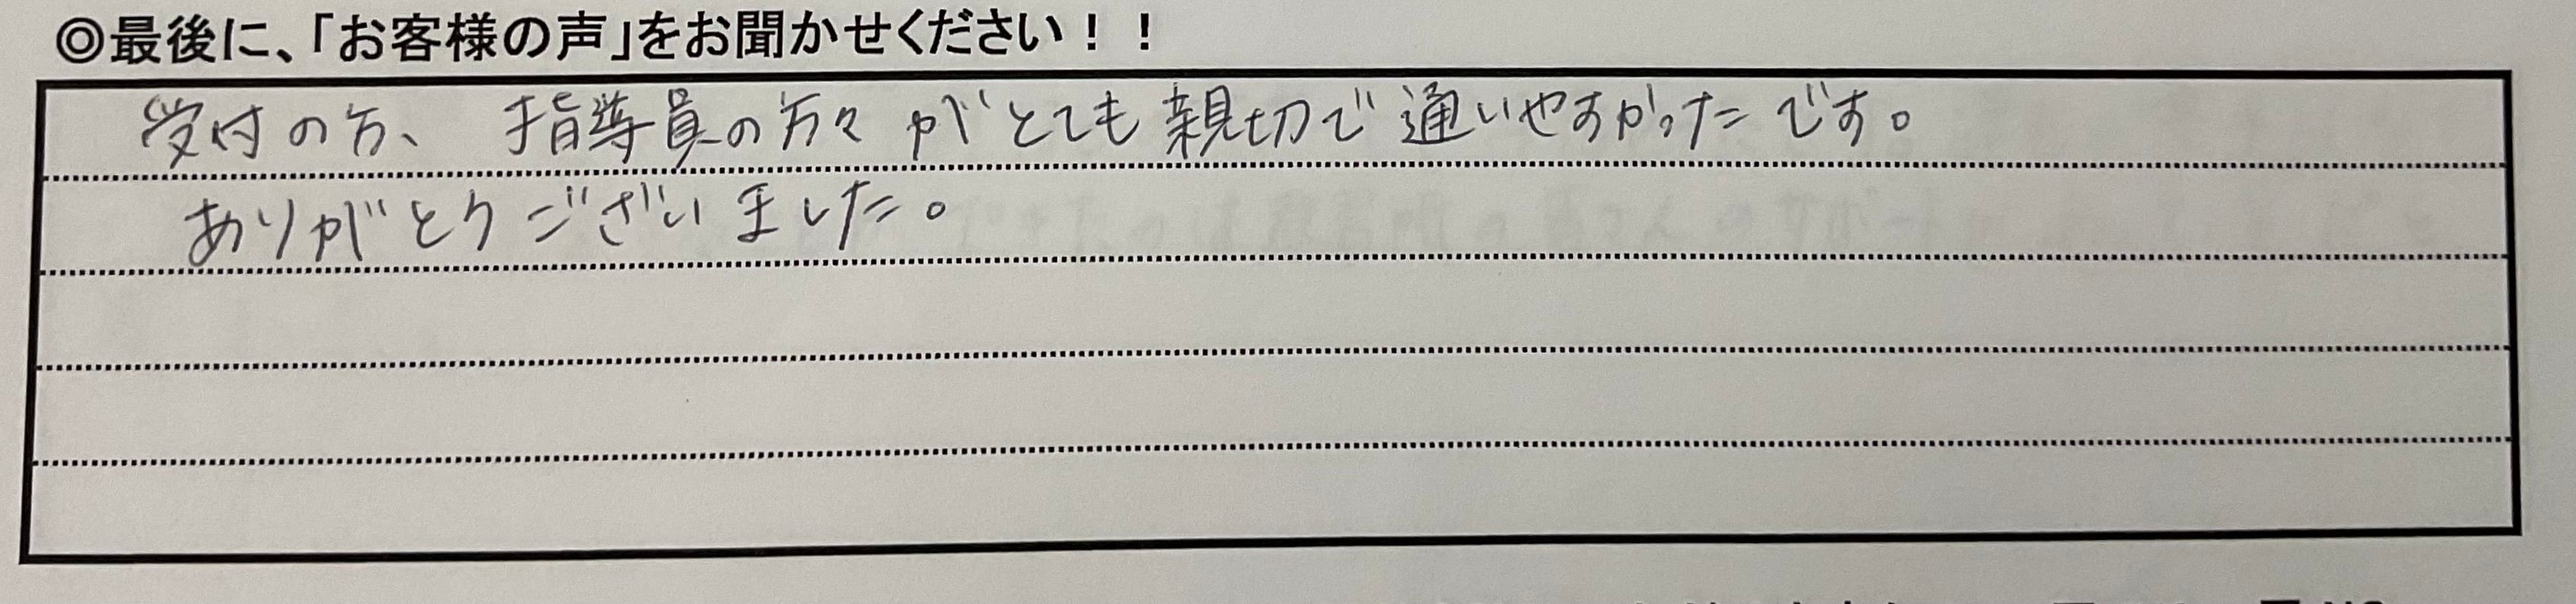 ◎最後に、「お客様の声」をお聞かせください！！
受付の方、指導員の方々がとても親切で通いやすかったです。
ありがとうございました。